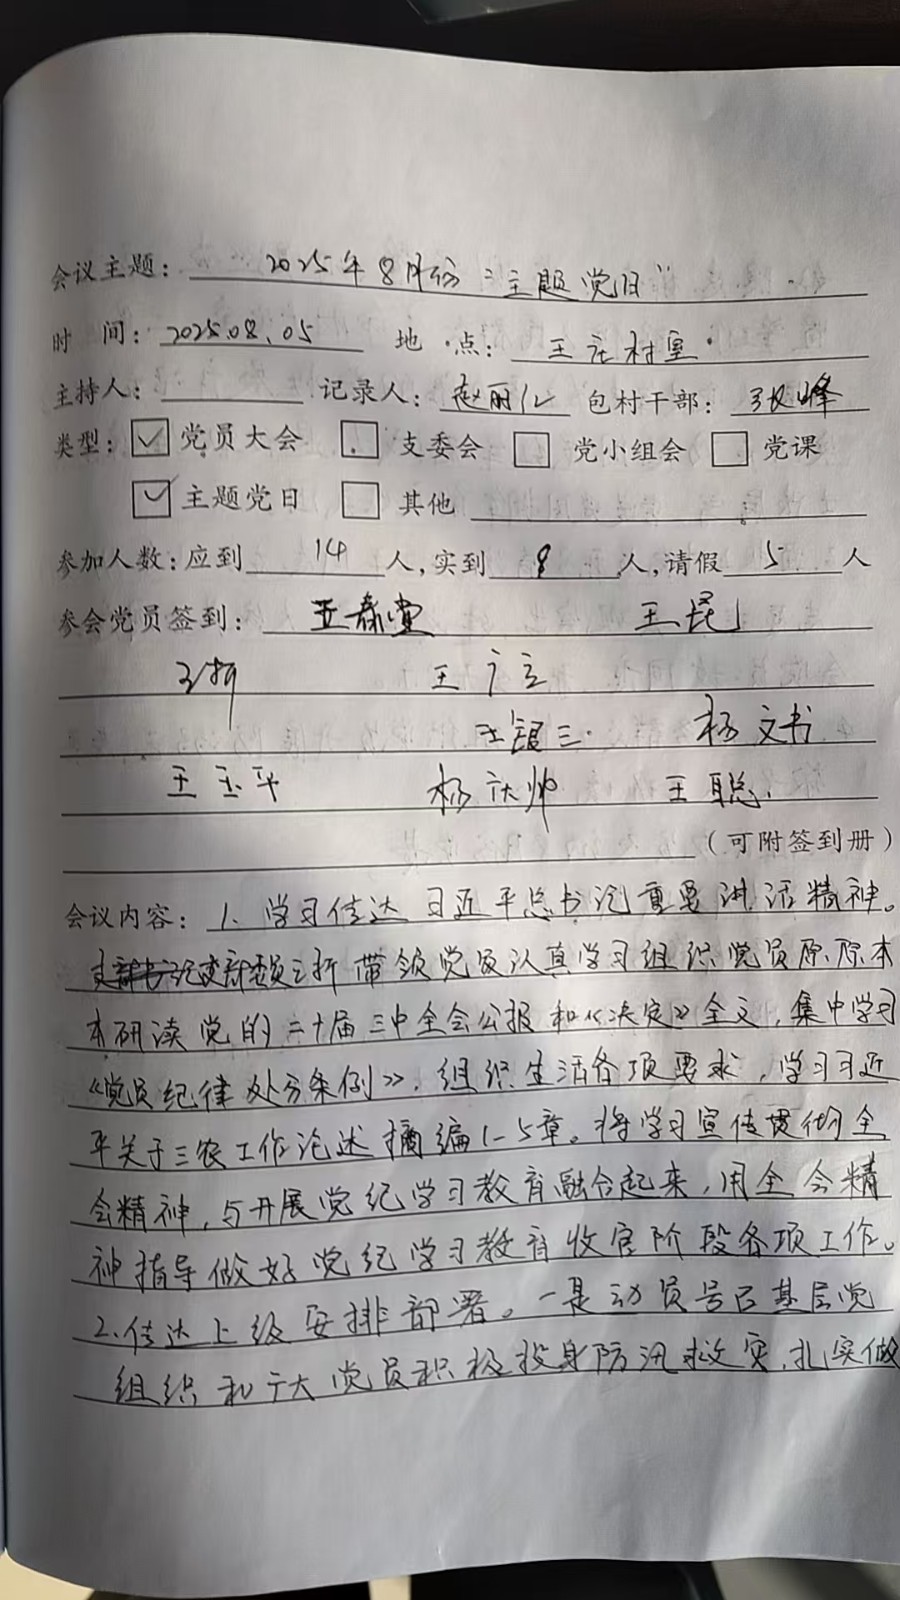 会议主题：2025年8月份"主题党日"
时 间：2025.08.05 地 点：王庄村室
主持人： 记录人：赵丽 包村干部：张峰
类型：☑党员大会 □支委会 □党小组会 □党课
☑主题党日 □其他
参加人数：应到14人，实到8人，请假5人
参会党员签到：王春堂 王昆
王广立
王银三 杨文书
王玉平 杨庆帅 王聪
（可附签到册）
会议内容：1、学习传达习近平总书记重要讲话精神。
带领党员认真学习组织党员原原本
本研读党的二十届三中全会公报和《决定》全文，集中学习
《党员纪律处分条例》，组织生活各项要求，学习习近
平关于三农工作论述摘编1-5章。将学习宣传贯彻全
会精神，与开展党纪学习教育融合起来，用全会精
神指导做好党纪学习教育收官阶段各项工作。
2.传达上级安排部署。一是动员号召基层党
组织和广大党员积极投身防汛救灾，扎实做